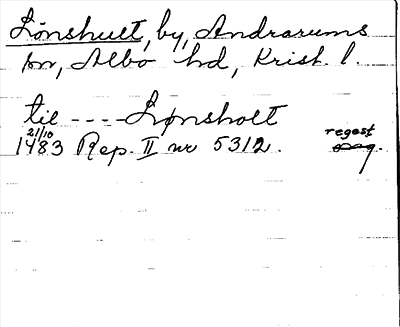 Lönshult, by, Andrarums
sn, Albo hd, Krist. l.
til ---- Lønsholt
21/10
1483 Rep. II nr 5312. regest